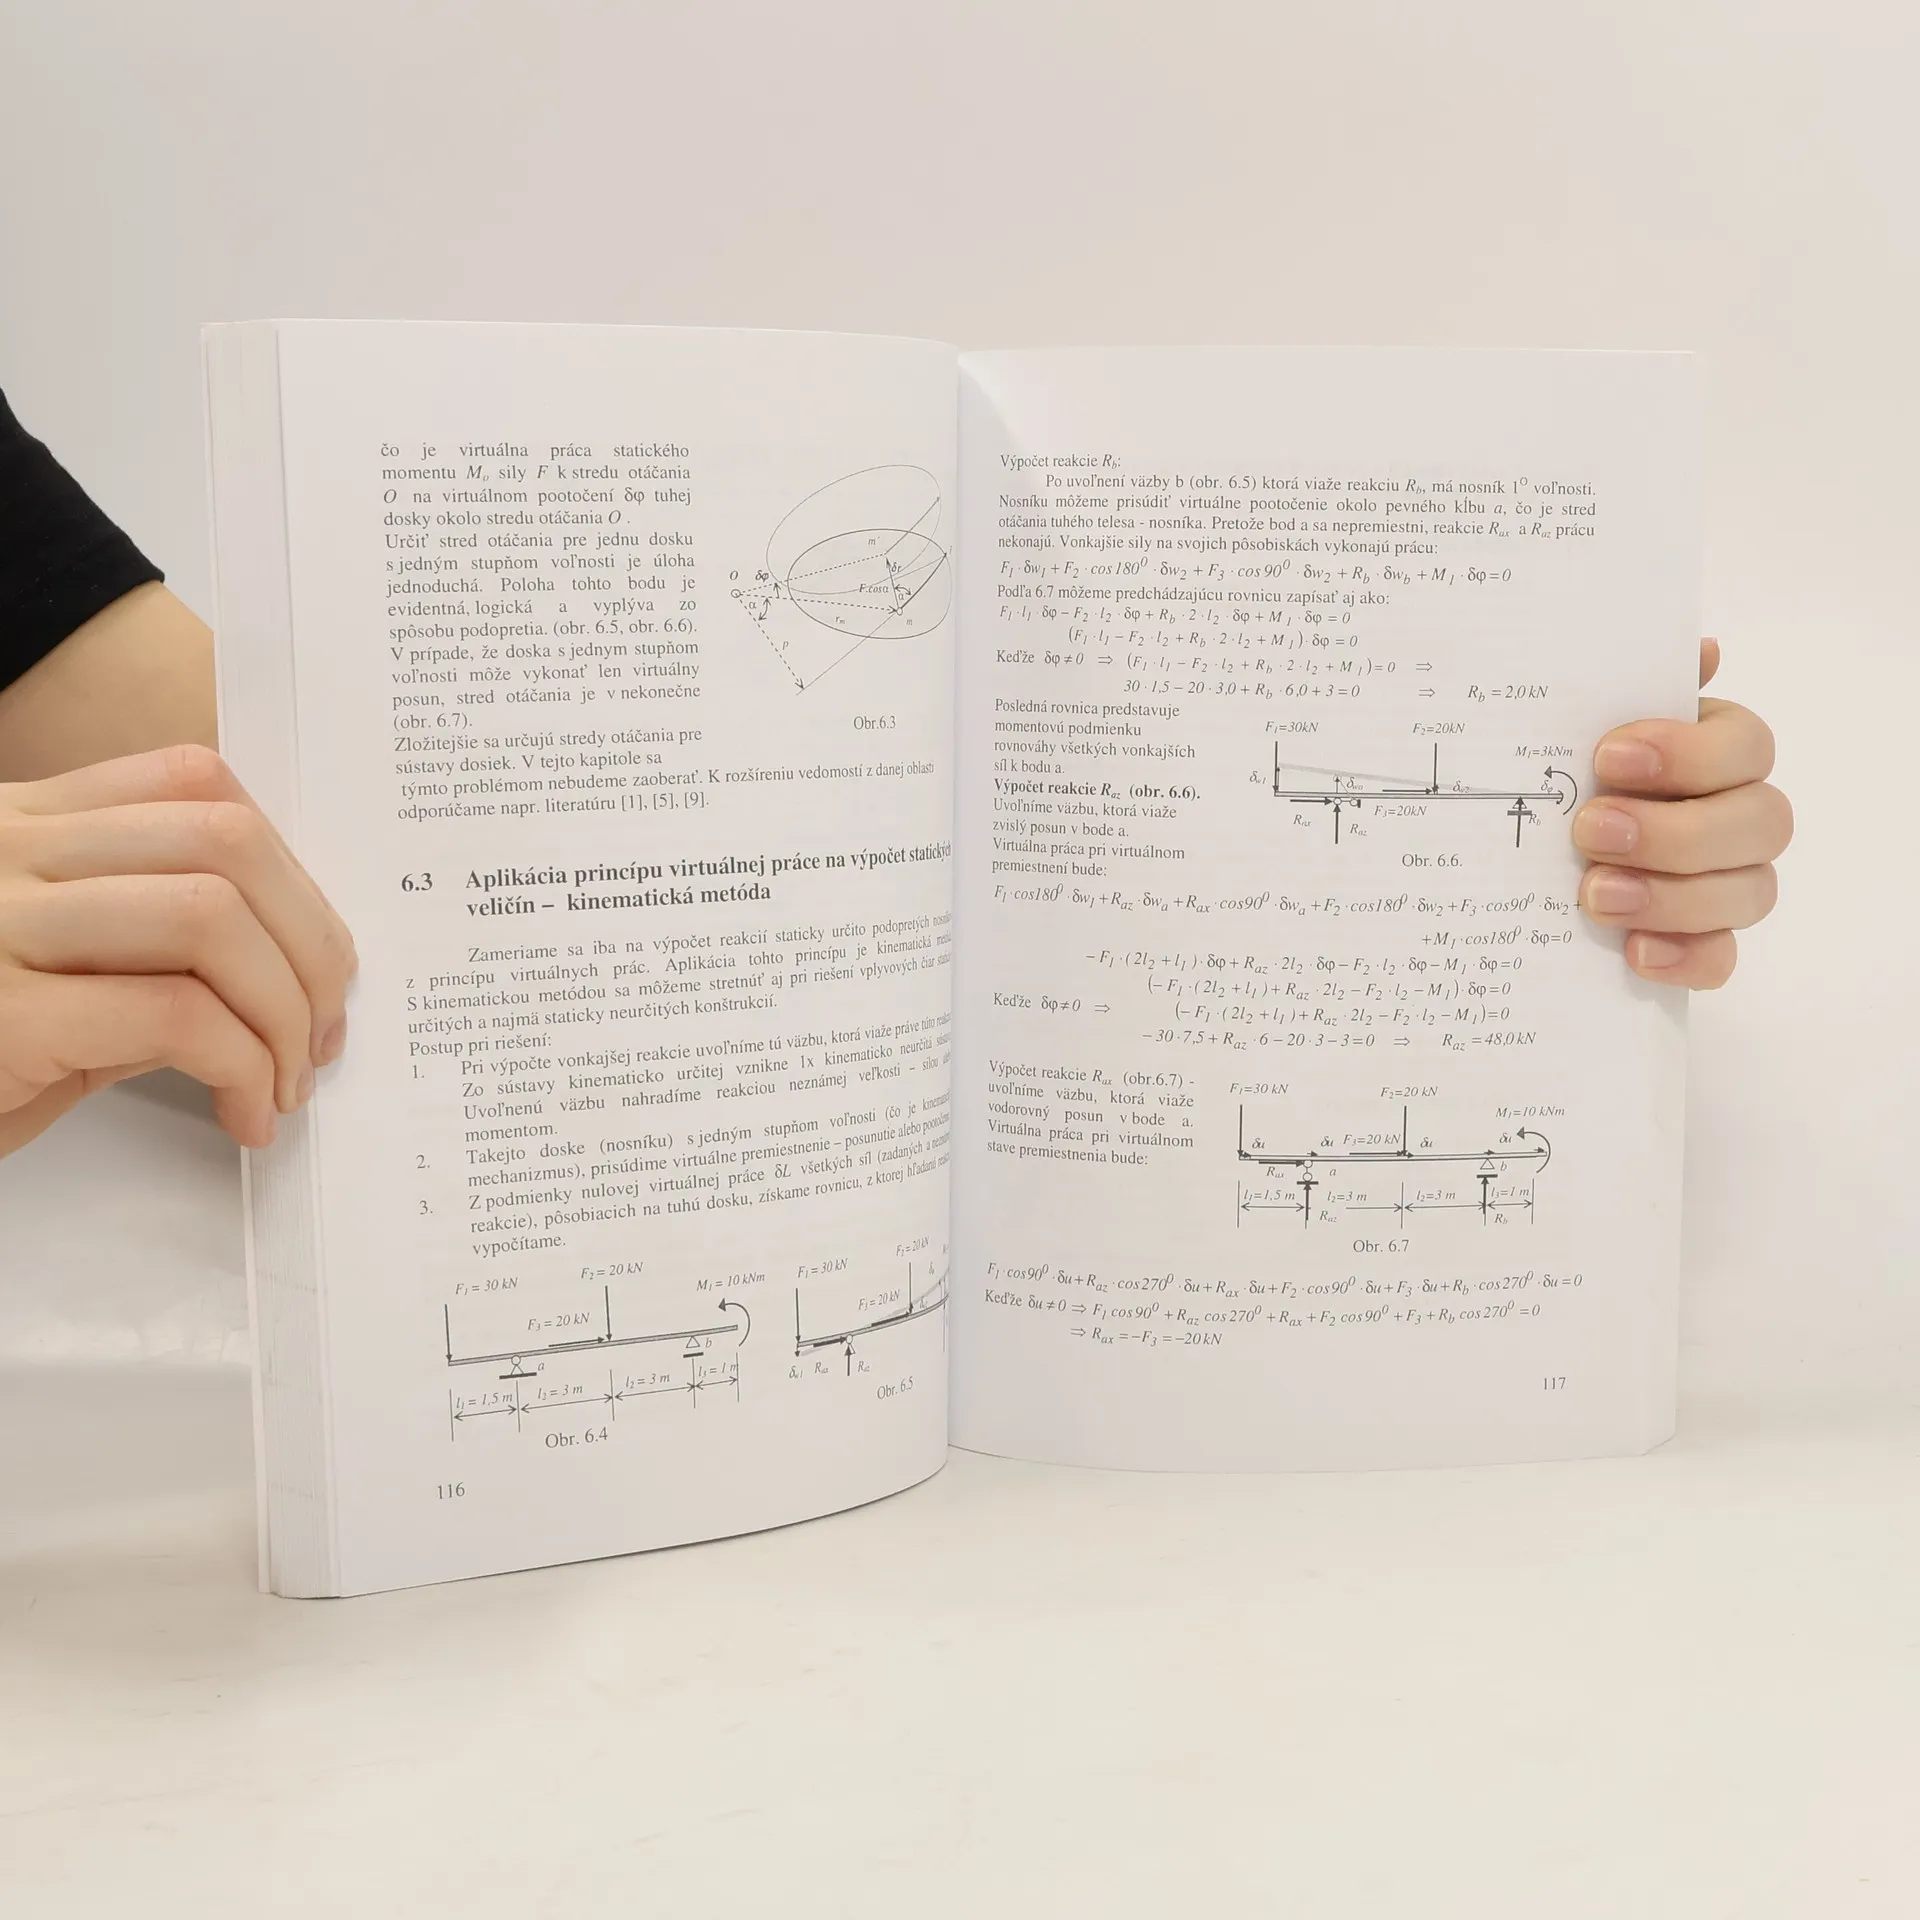 čo je virtuálna práca statického
momentu Mo sily F k stredu otáčania
O na virtuálnom pootočení δφ tuhej
dosky okolo stredu otáčania O .
Určiť stred otáčania pre jednu dosku
s jedným stupňom voľnosti je úloha
jednoduchá. Poloha tohto bodu je
evidentná, logická a vyplýva zo
spôsobu podopretia. (obr. 6.5, obr. 6.6).
V prípade, že doska s jednym stupňom
voľnosti môže vykonať len virtuálny
posun, stred otáčania je v nekonečne
(obr. 6.7).
Zložitejšie sa určujú stredy otáčania pre
sústavy dosiek. V tejto kapitole sa
týmto problémom nebudeme zaoberať. K rozšíreniu vedomostí z danej oblasti
odporúčame napr. literatúru [1], [5], [9].
O δφ m' δr
F.cosα α
α rm m
p
Obr.6.3
6.3 Aplikácia princípu virtuálnej práce na výpočet
veličín – kinematická metóda
Zameriame sa iba na výpočet reakcií staticky určito podopretých
z princípu virtuálnych prác. Aplikácia tohto princípu je kinematická
S kinematickou metódou sa môžeme stretnúť aj pri riešení vplyvových čiar
určitých a najmä staticky neurčitých konštrukcií.
Postup pri riešení:
1. Pri výpočte vonkajšej reakcie uvoľníme tú väzbu, ktorá viaže práve túto
Zo sústavy kinematicko určitej vznikne 1x kinematicko neurčitá
Uvoľnenú väzbu nahradíme reakciou neznámej veľkosti – silou
momentom.
2. Takejto doske (nosníku) s jedným stupňom voľnosti (čo je
mechanizmus), prisúdime virtuálne premiestnenie – posunutie alebo
3. Z podmienky nulovej virtuálnej práce δL všetkých síl (zadaných a
reakcie), pôsobiacich na tuhú dosku, získame rovnicu, z ktorej hľadanú
vypočítame.
F1 = 30 kN F2 = 20 kN M1 = 10 kNm
F3 = 20 kN
a b
l1 = 1,5 m l2 = 3 m l2 = 3 m l3 = 1 m
Obr. 6.4
F1 = 30 kN F2 = 20 kN
F3 = 20 kN
δw1 Rax Raz
Obr. 6.5
116
Výpočet reakcie Rb:
Po uvoľnení väzby b (obr. 6.5) ktorá viaže reakciu Rb, má nosník 1⁰ voľnosti.
Nosníku môžeme prisúdiť virtuálne pootočenie okolo pevného kĺbu a, čo je stred
otáčania tuhého telesa - nosníka. Pretože bod a sa nepremiestni, reakcie Rax a Raz prácu
nekonajú. Vonkajšie sily na svojich pôsobiskách vykonajú prácu:
F1 · δw1 + F2 · cos 180⁰ · δw2 + F3 · cos 90⁰ · δw2 + Rb · δwb + M1 · δφ = 0
Podľa 6.7 môžeme predchádzajúcu rovnicu zapísať aj ako:
F1 · l1 · δφ – F2 · l2 · δφ + Rb · 2 · l2 · δφ + M1 · δφ = 0
(F1 · l1 – F2 · l2 + Rb · 2 · l2 + M1) · δφ = 0
Keďže δφ ≠ 0 ⇒ (F1 · l1 – F2 · l2 + Rb · 2 · l2 + M1) = 0 ⇒
30 · 1,5 – 20 · 3,0 + Rb · 6,0 + 3 = 0 ⇒ Rb = 2,0 kN
Posledná rovnica predstavuje
momentovú podmienku
rovnováhy všetkých vonkajších
síl k bodu a.
Výpočet reakcie Raz (obr. 6.6).
Uvoľníme väzbu, ktorá viaže
zvislý posun v bode a.
Virtuálna práca pri virtuálnom
premiestnení bude:
F1=30kN F2=20kN
M1=3kNm
δw1 δwa δw2 δφ
Rax Raz F3=20kN Rb
Obr. 6.6.
F1 · cos180⁰ · δw1 + Raz · δwa + Rax · cos90⁰ · δwa + F2 · cos180⁰ · δw2 + F3 · cos90⁰ · δw2 +
+ M1 · cos180⁰ · δφ = 0
– F1 · ( 2l2 + l1 ) · δφ + Raz · 2l2 · δφ – F2 · l2 · δφ – M1 · δφ = 0
(– F1 · ( 2l2 + l1 ) + Raz · 2l2 – F2 · l2 – M1) · δφ = 0
Keďže δφ ≠ 0 ⇒ (– F1 · ( 2l2 + l1 ) + Raz · 2l2 – F2 · l2 – M1) = 0
– 30 · 7,5 + Raz · 6 – 20 · 3 – 3 = 0 ⇒ Raz = 48,0 kN
Výpočet reakcie Rax (obr.6.7) -
uvoľníme väzbu, ktorá viaže
vodorovný posun v bode a.
Virtuálna práca pri virtuálnom
stave premiestnenia bude:
F1=30 kN F2=20 kN
M1=10 kNm
δu δu F3=20 kN δu δu
Rax a b
l1=1,5 m l2=3 m l2=3 m l3=1 m
Raz Rb
Obr. 6.7
F1 · cos 90⁰ · δu + Raz · cos 270⁰ · δu + Rax · δu + F2 · cos 90⁰ · δu + F3 · δu + Rb · cos 270⁰ · δu = 0
Keďže δu ≠ 0 ⇒ F1 cos 90⁰ + Raz cos 270⁰ + Rax + F2 cos 90⁰ + F3 + Rb cos 270⁰ = 0
⇒ Rax = –F3 = –20 kN
117